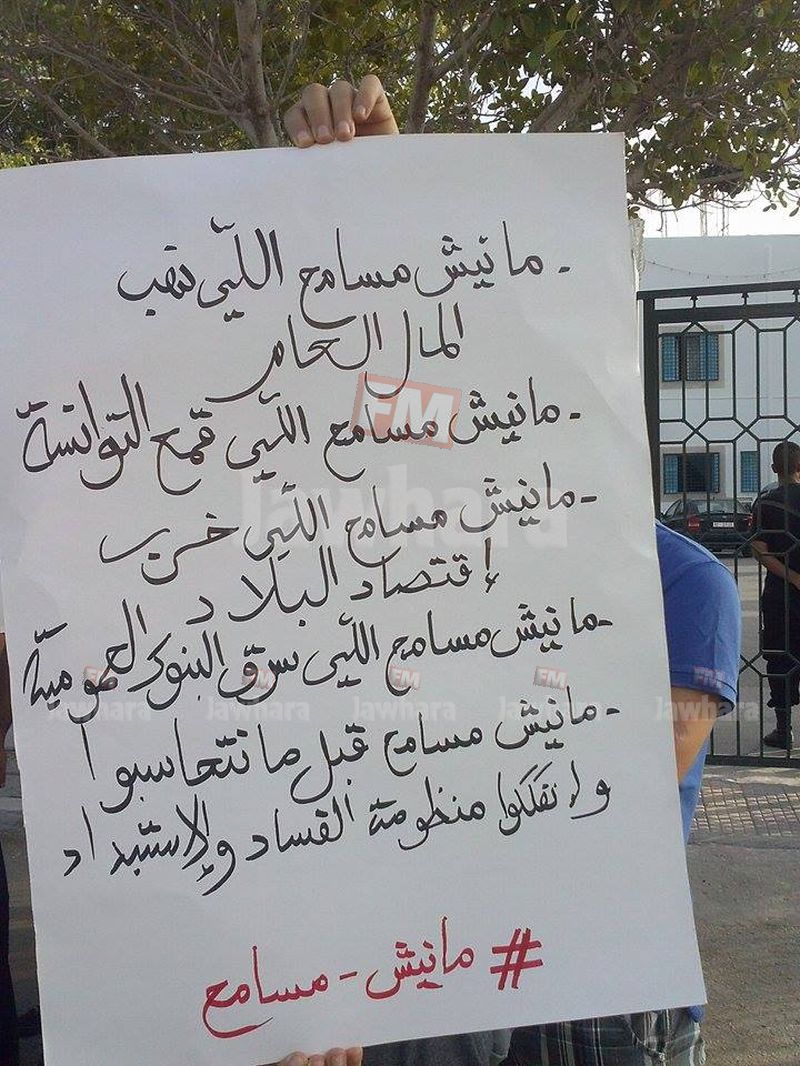 - مانيش مسامح اللّي نهب
المال العام
- مانيش مسامح اللّي قمع التوانسة
- مانيش مسامح اللّي خرب
إقتصاد البلاد
- مانيش مسامح اللّي سرق البنوك العمومية
- مانيش مسامح قبل ما نتحاسبوا
وانفكّكوا منظومة الفساد والإستبداد
# مانيش - مسامح
FM
Jawhara
FM FM FM FM FM
Jawhara Jawhara Jawhara Jawhara Jawhara